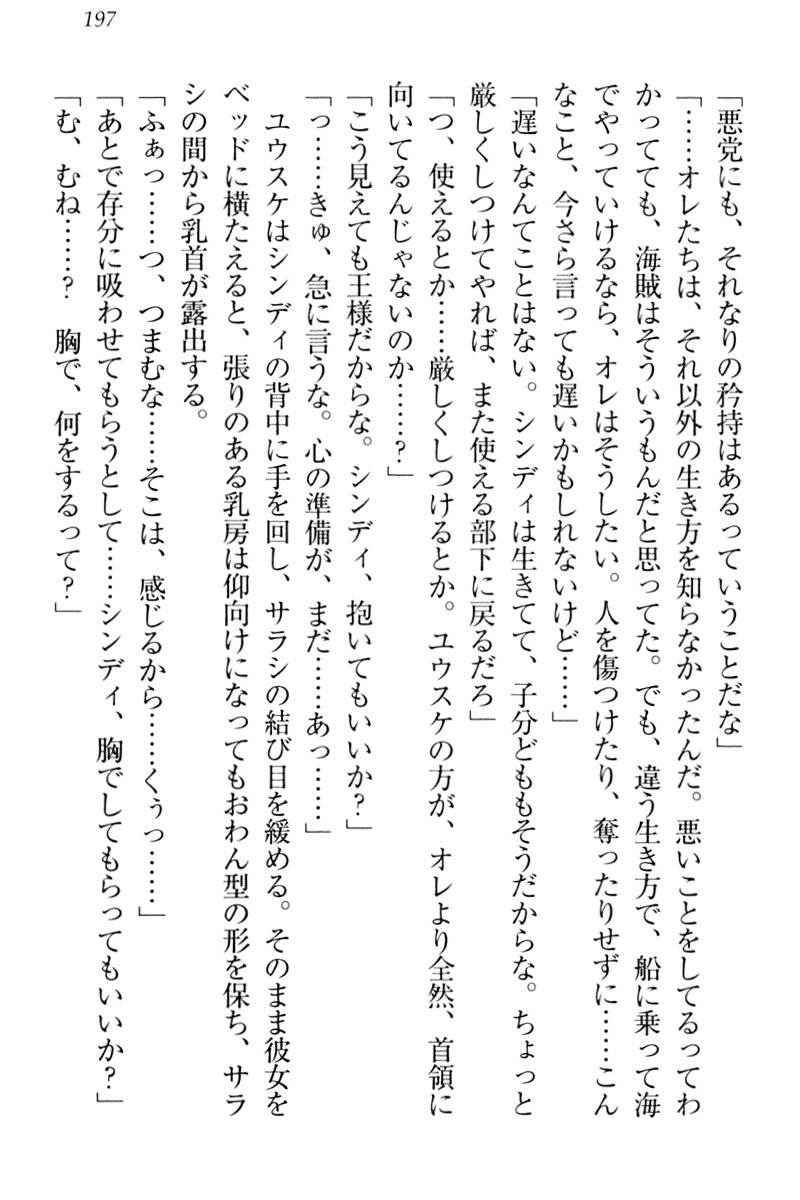 197
「悪党にも、それなりの矜持はあるっていうことだな」
「……オレたちは、それ以外の生き方を知らなかったんだ。悪いことをしてるってわ
かってても、海賊はそういうもんだと思ってた。でも、違う生き方で、船に乗って海
でやっていけるなら、オレはそうしたい。人を傷つけたり、奪ったりせずに……こん
なこと、今さら言っても遅いかもしれないけど……」
「遅いなんてことはない。シンディは生きてて、子分どももそうだからな。ちょっと
厳しくしつけてやれば、また使える部下に戻るだろ」
「つ、使えるとか……厳しくしつけるとか。ユウスケの方が、オレより全然、首領に
向いてるんじゃないのか……?」
「こう見えても王様だからな。シンディ、抱いてもいいか?」
「っ……きゅ、急に言うな。心の準備が、まだ……あっ……」
　ユウスケはシンディの背中に手を回し、サラシの結び目を緩める。そのまま彼女を
ベッドに横たえると、張りのある乳房は仰向けになってもおわん型の形を保ち、サラ
シの間から乳首が露出する。
「ふぁっ……つ、つまむな……そこは、感じるから……くぅっ……」
「あとで存分に吸わせてもらうとして……シンディ、胸でしてもらってもいいか?」
「む、むね……?　胸で、何をするって?」